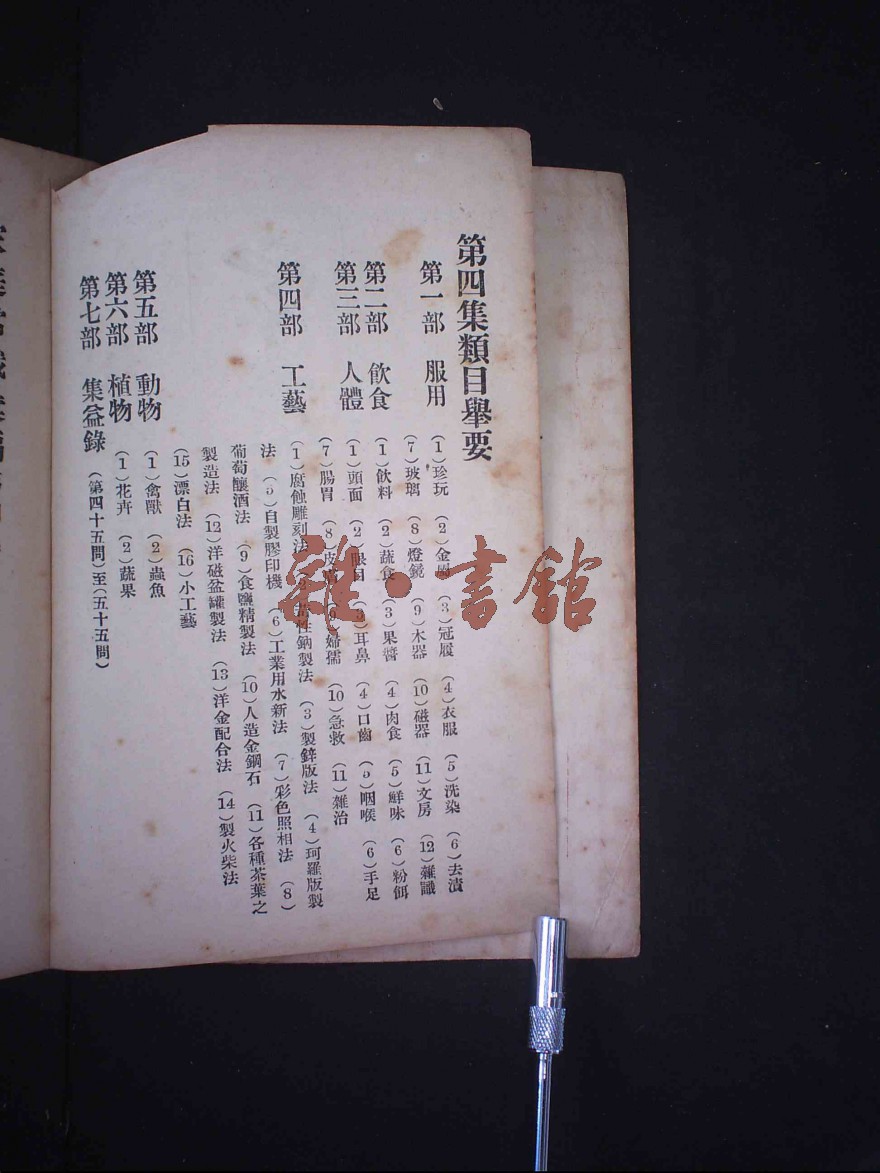 第四集類目舉要
第一部 服用
(1)珍玩 (2)金屬 (3)冠履 (4)衣服 (5)洗染 (6)去漬
(7)玻璃 (8)燈鏡 (9)木器 (10)磁器 (11)文房 (12)雜識
第二部 飲食
(1)飲料 (2)蔬食 (3)果醬 (4)肉食 (5)鮮味 (6)粉餌
第三部 人體
(1)頭面 (2)眼目 (3)耳鼻 (4)口齒 (5)咽喉 (6)手足
(7)腸胃 (8)皮 (9)婦孺 (10)急救 (11)雜治
第四部 工藝
(1)腐蝕雕刻法 性鈉製法 (3)製鋅版法 (4)珂羅版製
法 (5)自製膠印機 (6)工業用水新法 (7)彩色照相法 (8)
葡萄釀酒法 (9)食鹽精製法 (10)人造金鋼石 (11)各種茶葉之
製造法 (12)洋磁盆罐製法 (13)洋金配合法 (14)製火柴法
(15)漂白法 (16)小工藝
第五部 動物
(1)禽獸 (2)蟲魚
第六部 植物
(1)花卉 (2)蔬果
第七部 集益錄
(第四十五問)至(五十五問)
雜·書館